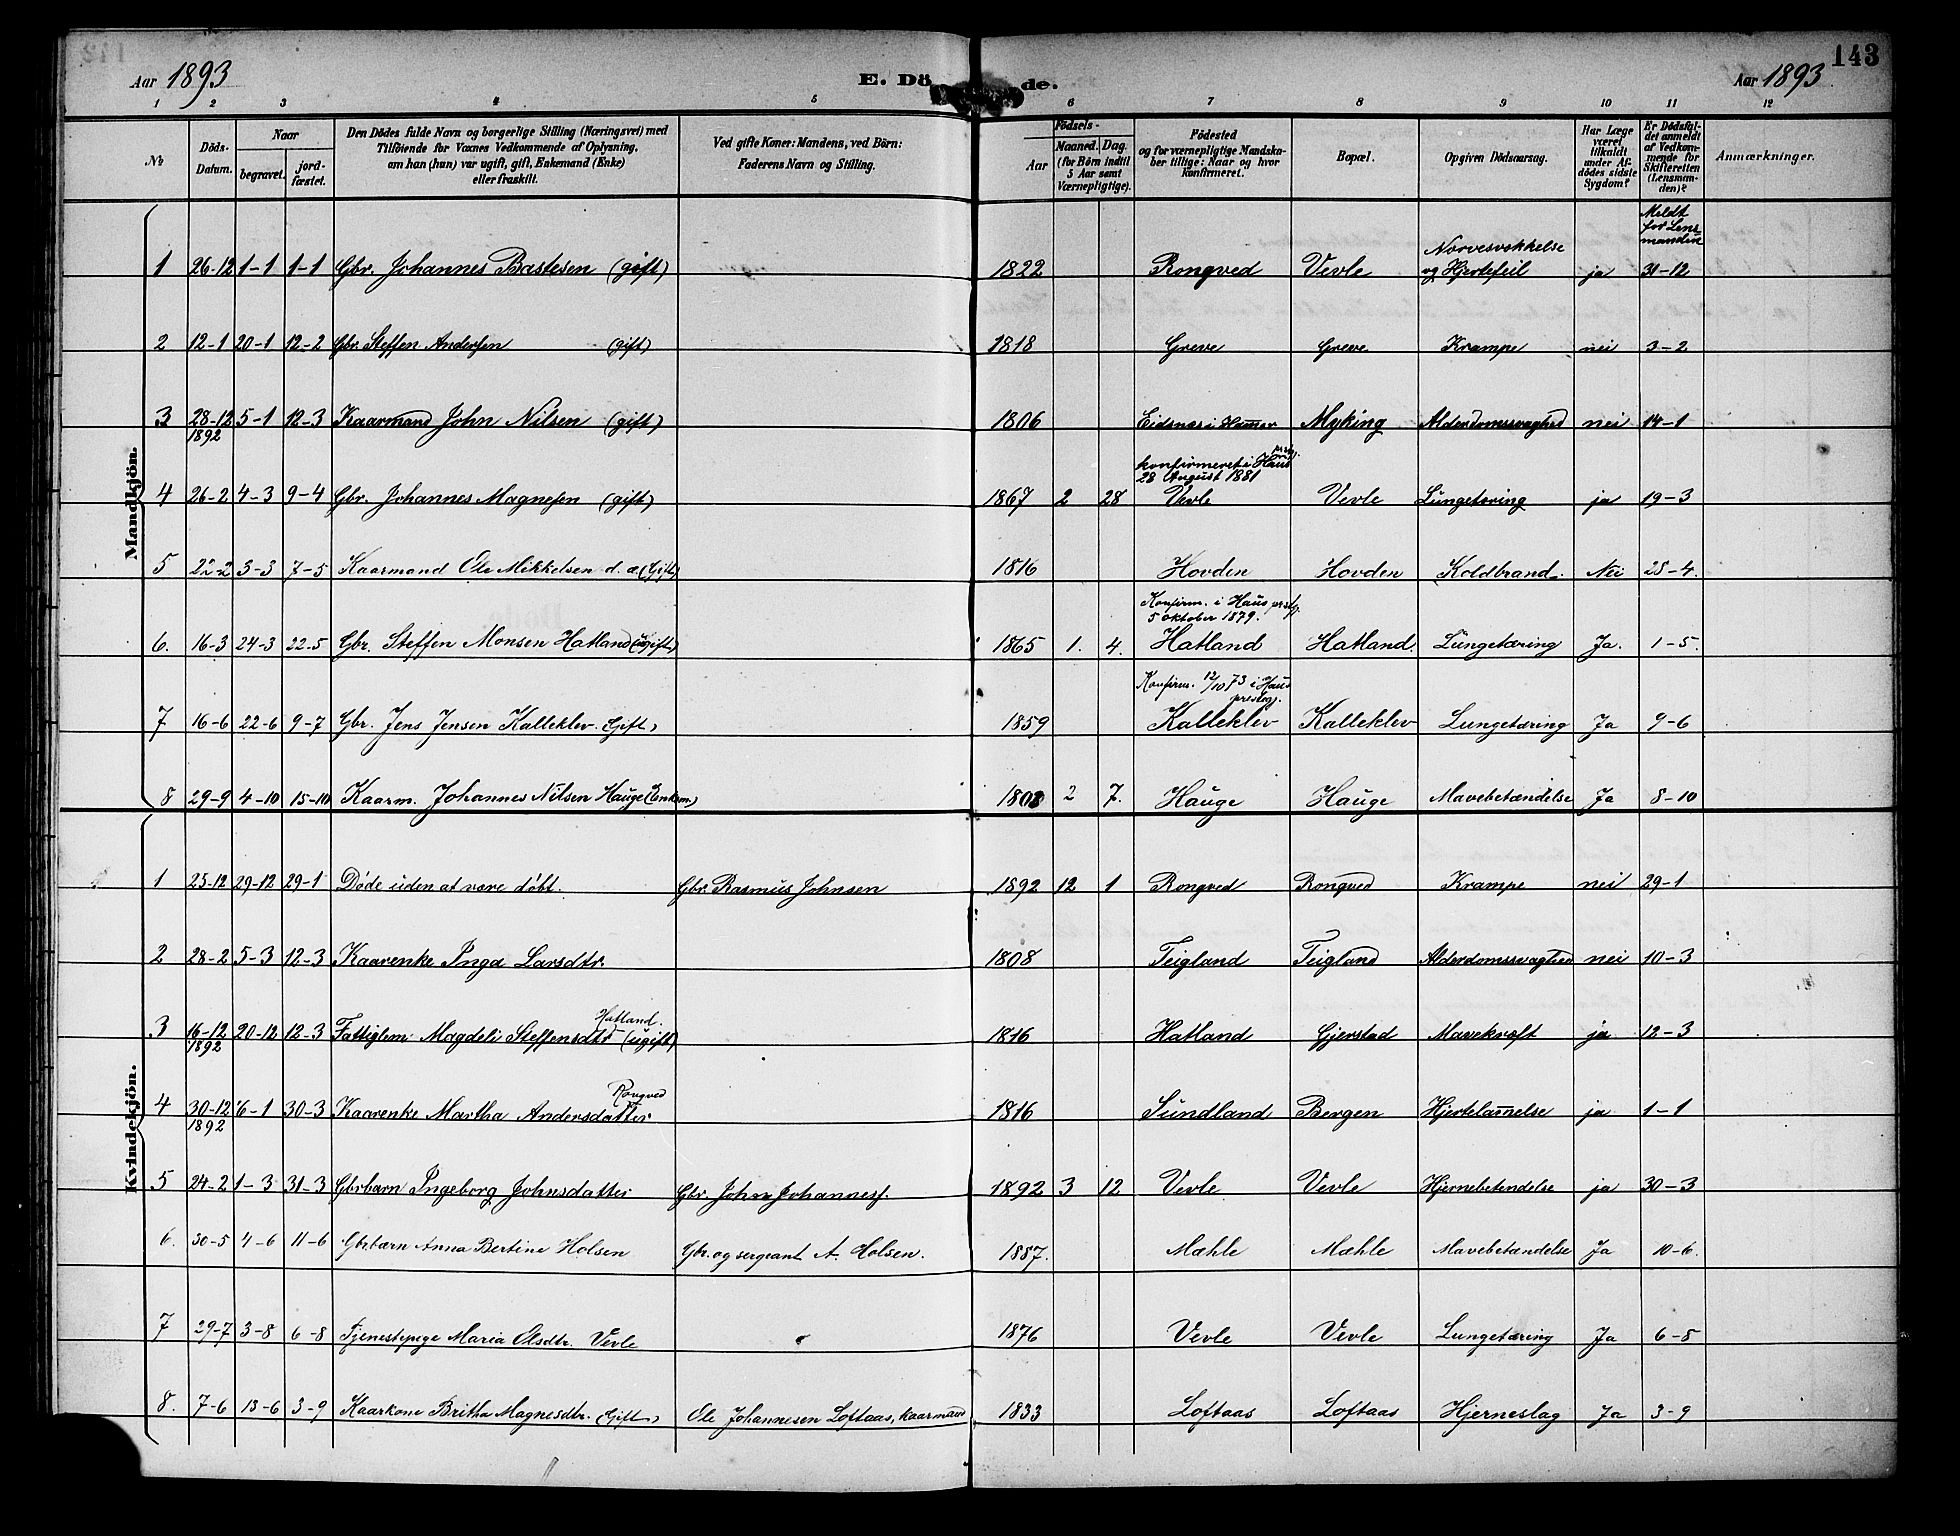 143
Aar 1893 E. Dö de. Aar 1893
1 2 3 4 5 6 7 8 9 10 11 12
No
Döds-Datum.
Naar
begravet. jord-fæstet.
Den Dödes fulde Navn og borgerlige Stilling (Næringsvei) med
Tilföiende for Voxnes Vedkommende af Oplysning,
om han (hun) var ugift, gift, Enkemand (Enke)
eller fraskilt.
Ved gifte Koner: Mandens, ved Börn:
Faderens Navn og Stilling.
Födsels-
Aar
Maaned. Dag.
(for Börn indtil
5 Aar samt
Værnepligtige).
Födested
og for værnepligtige Mandska-
ber tillige: Naar og hvor
konfirmeret.
Bopæl.
Opgiven Dödsaarsag.
Har Læge
været
tilkaldt
under Af-
dödes sidste
Sygdom?
Er Dödsfal-
det anmeldt
af Vedkom-
mende for
Skifteretten
(Lensman-
den)?
Anmærkninger.
Mandkjön.
Meldt
for Lens
manden
1 26-12 1-1 1-1 Gbr. Johannes Bastesen (gift) 1822 Rongved Vevle Nervesvækkelse og Hjertefeil ja 31-12
2 12-1 20-1 12-2 Gbr. Steffen Andersen (gift) 1818 Greve Greve Krampe nei 3-2
3 28-12 1892 5-1 12-3 Kaarmand John Nilsen (gift) 1806 Eidsnes i Hammer Myking Alderdomssvaghed nei 14-1
konfirmeret i Haus prstg.
28 August 1881
4 26-2 4-3 9-4 Gbr. Johannes Magnesen (gift) 1867 2 28 Vevle Vevle Lungetæring ja 19-3
5 22-2 3-3 7-5 Kaarmand Ole Mikkelsen d. æ (Gift) 1816 Hovden Hovden Koldbrand. Nei 25-4.
Konfirm. i Haus prstg.
5 oktober 1879.
6. 16-3 24-3 22-5 Gbr. Steffen Monsen Hatland (ugift) 1865 1. 4. Hatland Hatland. Lungetæring Ja. 1-5.
Konfirm. 12/10 73 i Haus
prestegj.
7 16-6 22-6 9-7 Gbr. Jens Jensen Kalleklev. (Gift) 1859 Kalleklev Kalleklev Lungetæring Ja 9-6
8 29-9 4-10 15-10 Kaarm. Johannes Nilsen Hauge (Enkem.) 1808 2 7. Hauge Hauge Mavebetændelse Ja 8-10
Kvindekjön.
1 25-12 29-12 29-1 Døde uden at være døbt. Gbr. Rasmus Johnsen 1892 12 1 Rongved Rongved Krampe nei 29-1
2 28-2 5-3 12-3 Kaarenke Inga Larsdtr. 1808 Teigland Teigland Alderdomssvaghed nei 10-3
3 16-12 1892 20-12 12-3 Fattiglem Magdeli Steffensdtr Hatland. (ugift) 1816 Hatland Gjerstad Mavekræft ja 12-3
4 30-12 1892 6-1 30-3 Kaarenke Martha Andersdatter Rongved 1816 Sundland Bergen Hjertelamelse ja 1-1
5 24-2 1-3 31-3 Gbrbarn Ingeborg Johnsdatter Gbr. John Johannesf. 1892 3 12 Vevle Vevle Hjernebetendelse ja 30-3
6. 30-5 4-6 11-6 Gbrbarn Anna Bertine Holsen Gbr. og sergeant A. Holsen. 1887. Mæhle Mæhle Mavebetændelse Ja 10-6.
7 29-7 3-8 6-8 Tjenestepige Maria Olsdtr. Vevle 1876 Vevle Vevle Lungetæring Ja 6-8
8. 7-6 13-6 3-9 Kaarkone Britha Magnesdtr. (Gift) Ole Johannesen Loftaas, kaarmand 1833 Loftaas Loftaas Hjerneslag Ja 3-9